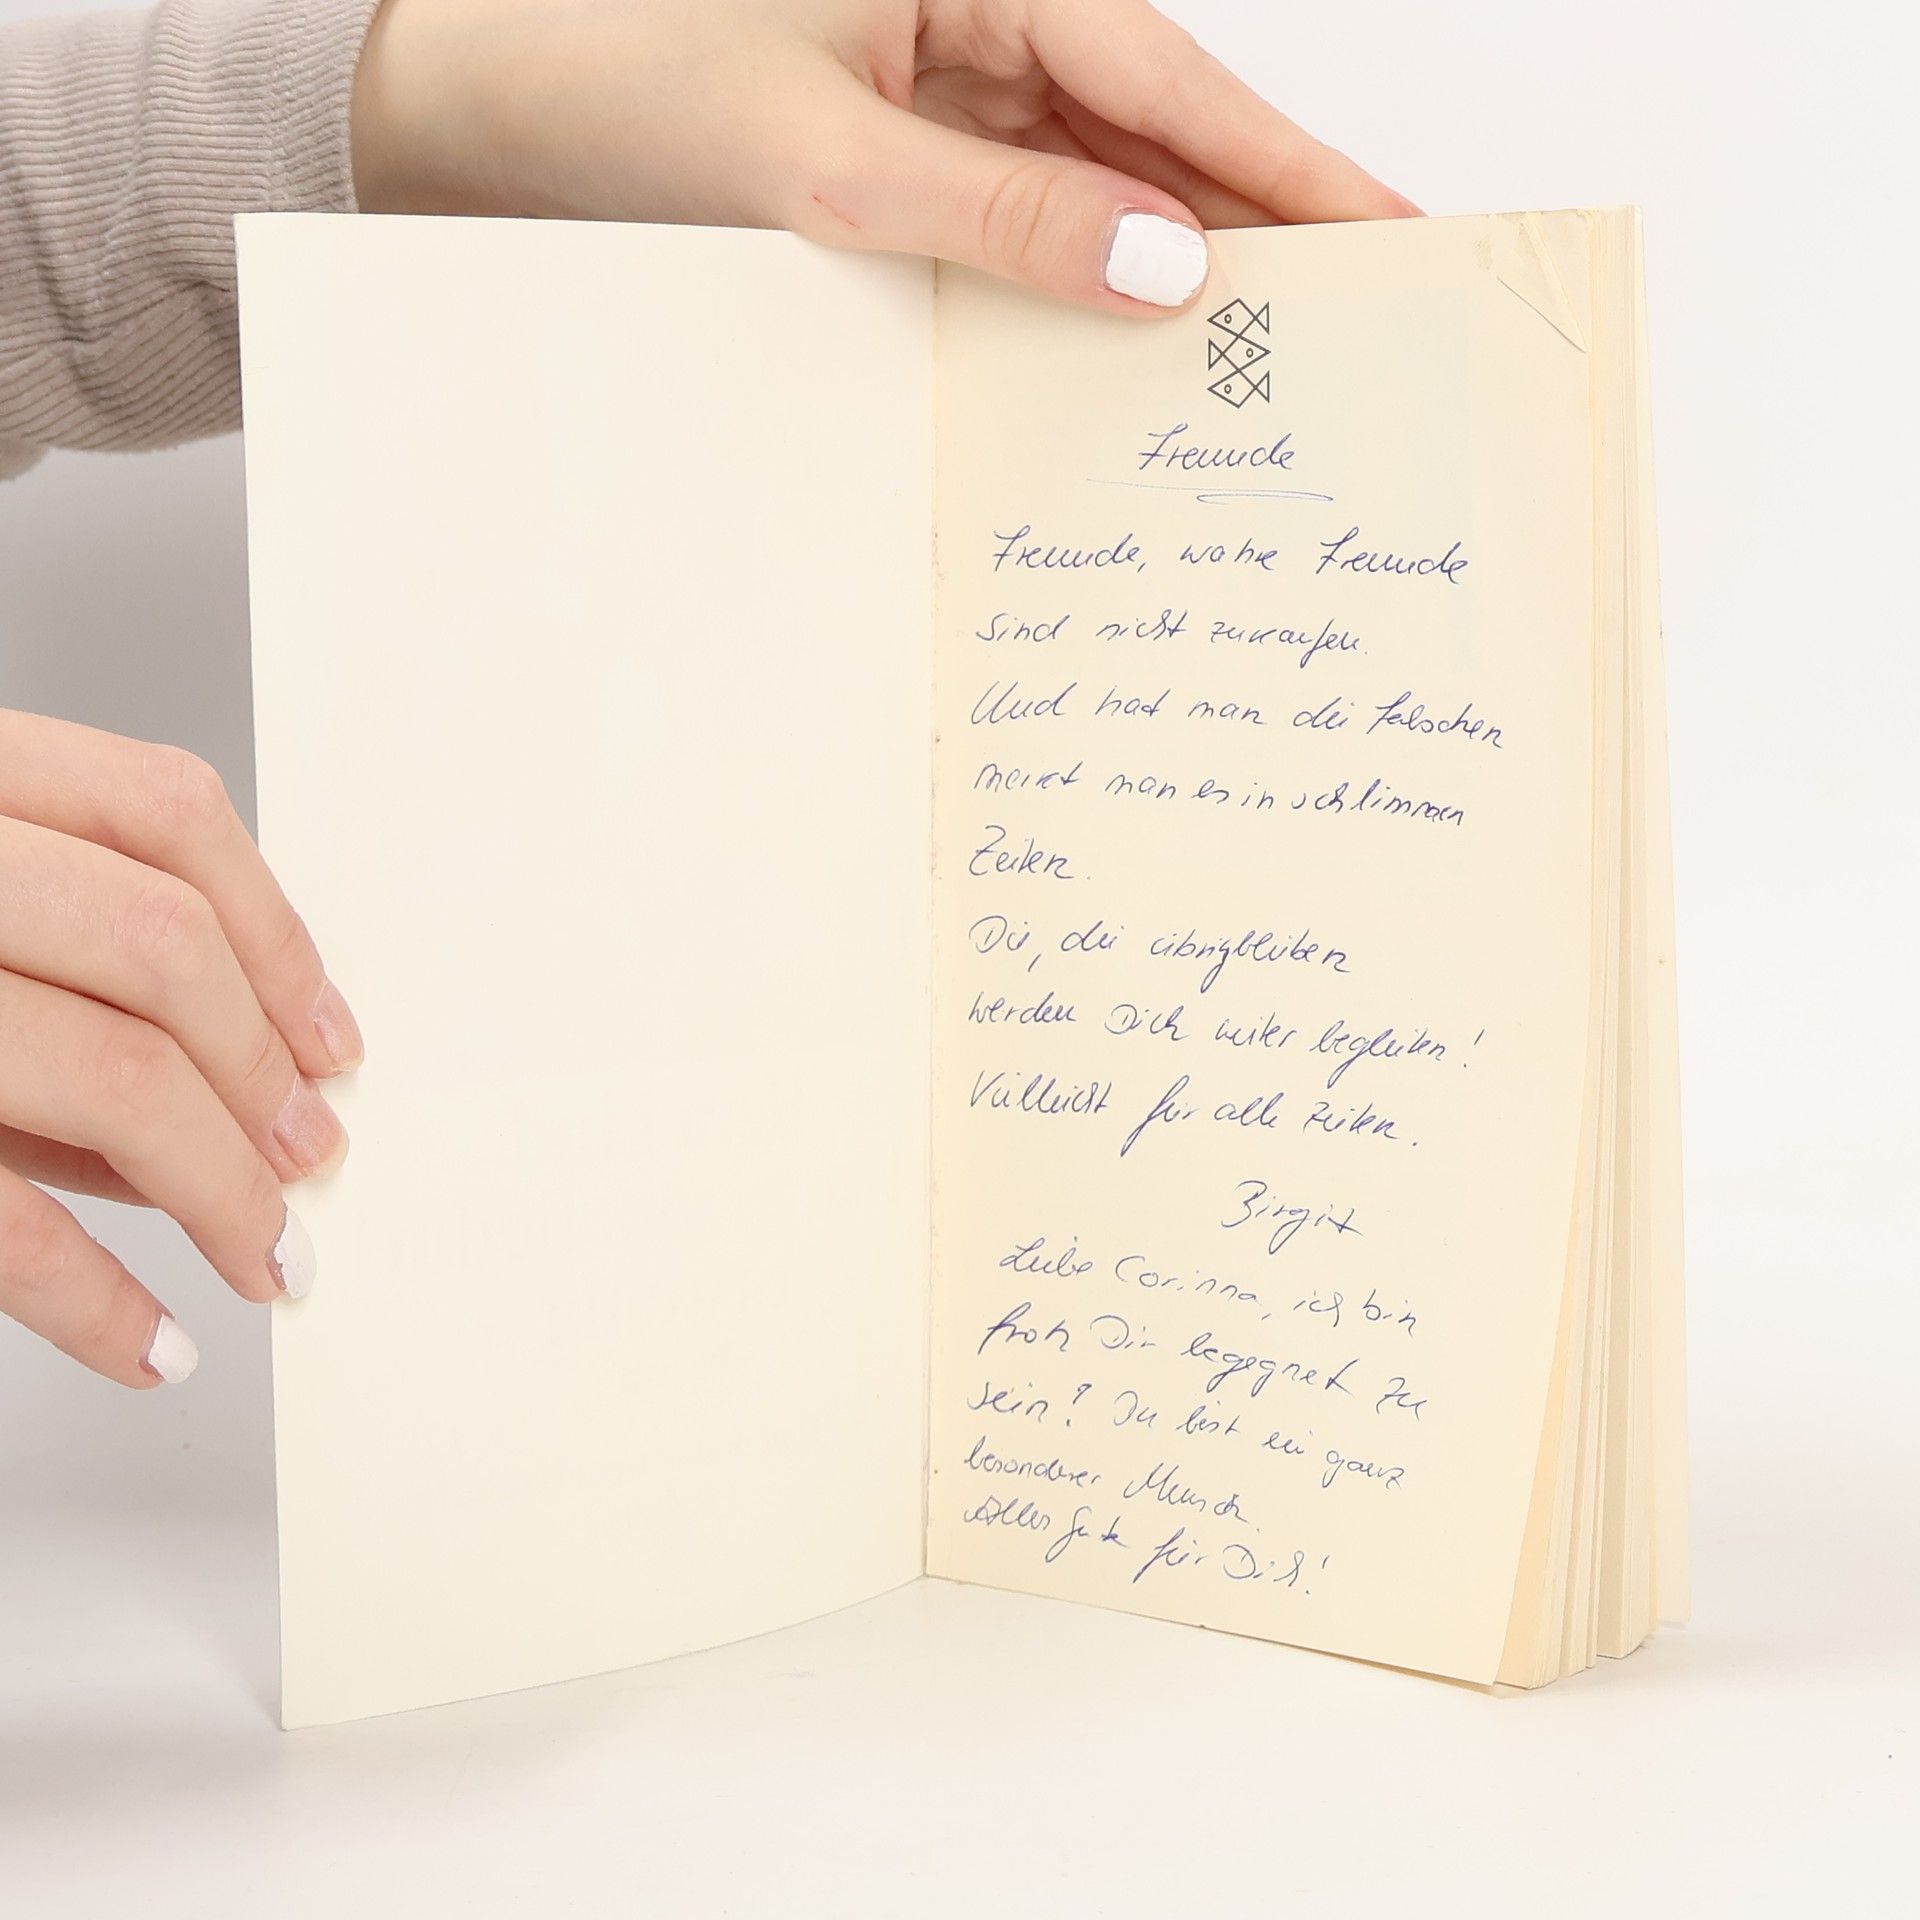 Freunde
Freunde, wahre Freunde
sind nicht zukaufen.
Und hat man die falschen
merkt man es in schlimmen
Zeiten.
Die, die übrigbleiben
werden Dich weiter begleiten!
Vielleicht für alle Zeiten.
Birgit
Liebe Corinna, ich bin
froh Dir begegnet zu
sein! Du bist ein ganz
besonderer Mensch.
Alles Gute für Dich!